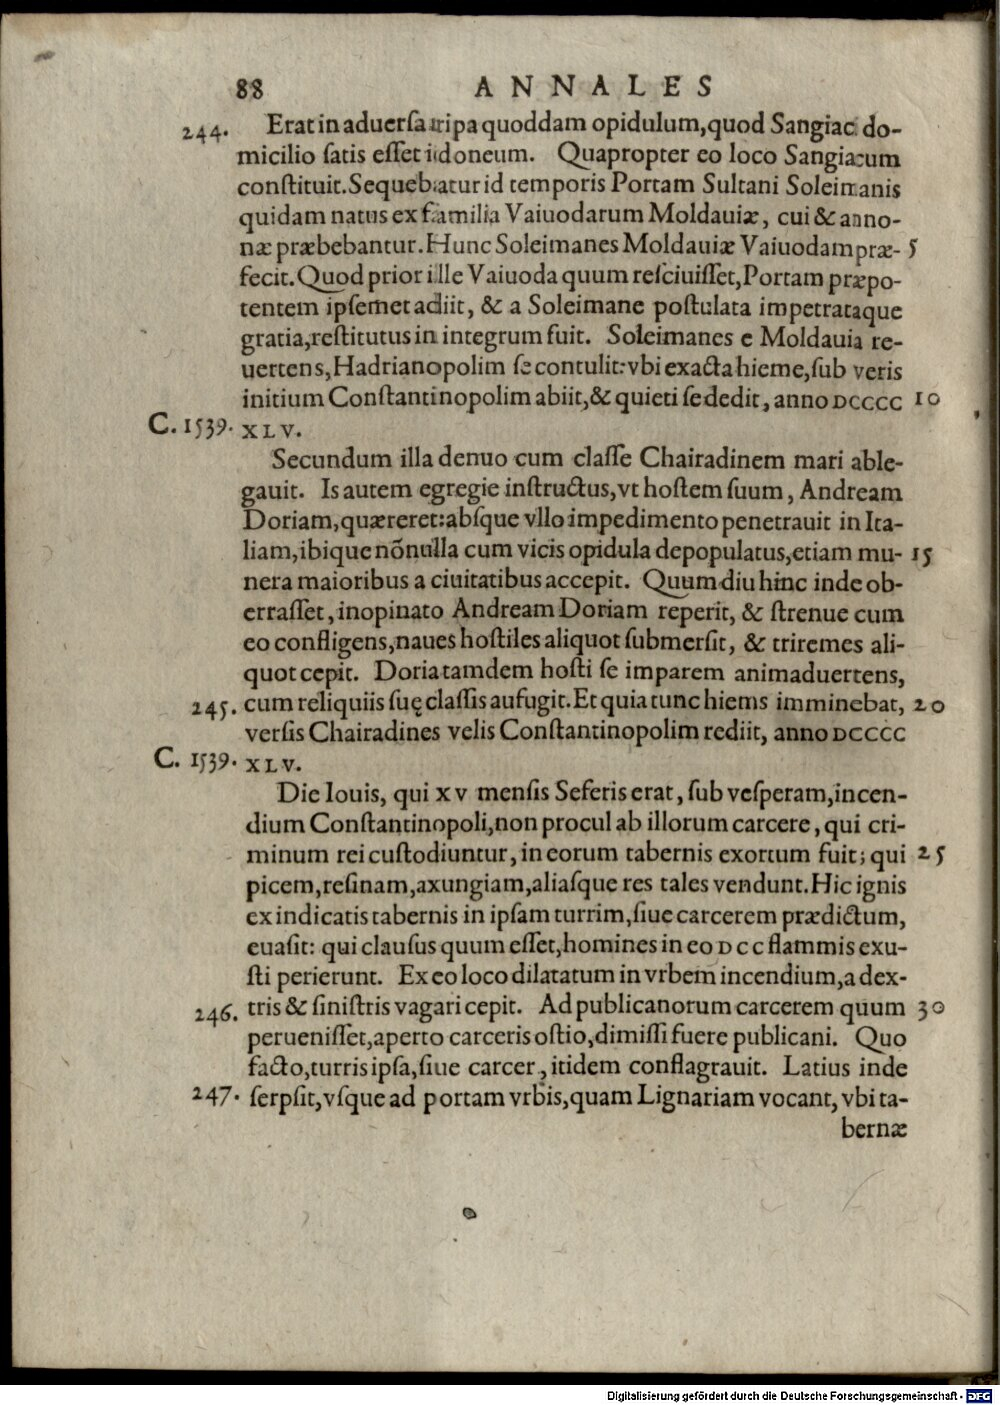 88 ANNALES
244. Erat in aduersa ripa quoddam opidulum, quod Sangiac do-
micilio satis esset idoneum. Quapropter eo loco Sangiacum
constituit. Sequebatur id temporis Portam Sultani Soleimanis
quidam natus ex familia Vaiuodarum Moldauiæ, cui & anno-
næ præbebantur. Hunc Soleimanes Moldauiæ Vaiuodam præ- 5
fecit. Quod prior ille Vaiuoda quum resciuisset, Portam præpo-
tentem ipsemet adiit, & a Soleimane postulata impetrataque
gratia, restitutus in integrum fuit. Soleimanes e Moldauia re-
uertens, Hadrianopolim se contulit: vbi exacta hieme, sub veris
initium Constantinopolim abiit, & quieti se dedit, anno DCCCC 10
C. 1539. XLV.
Secundum illa denuo cum classe Chairadinem mari able-
gauit. Is autem egregie instructus, vt hostem suum, Andream
Doriam, quæreret: absque vllo impedimento penetrauit in Ita-
liam, ibique nõnulla cum vicis opidula depopulatus, etiam mu- 15
nera maioribus a ciuitatibus accepit. Quum diu hinc inde ob-
errasset, inopinato Andream Doriam reperit, & strenue cum
eo confligens, naues hostiles aliquot submersit, & triremes ali-
quot cepit. Doria tamdem hosti se imparem animaduertens,
245. cum reliquiis suę classis aufugit. Et quia tunc hiems imminebat, 20
versis Chairadines velis Constantinopolim rediit, anno DCCCC
C. 1539. XLV.
Die Iouis, qui XV mensis Seferis erat, sub vesperam, incen-
dium Constantinopoli, non procul ab illorum carcere, qui cri-
minum rei custodiuntur, in eorum tabernis exortum fuit; qui 25
picem, resinam, axungiam, aliasque res tales vendunt. Hic ignis
ex indicatis tabernis in ipsam turrim, siue carcerem prædictum,
euasit: qui clausus quum esset, homines in eo DCC flammis exu-
sti perierunt. Ex eo loco dilatatum in vrbem incendium, a dex-
246. tris & sinistris vagari cepit. Ad publicanorum carcerem quum 30
peruenisset, aperto carceris ostio, dimissi fuere publicani. Quo
facto, turris ipsa, siue carcer, itidem conflagrauit. Latius inde
247. serpsit, vsque ad portam vrbis, quam Lignariam vocant, vbi ta-
bernæ
Digitalisierung gefördert durch die Deutsche Forschungsgemeinschaft - DFG